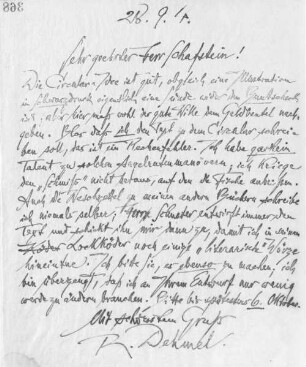 868
28. 9. 4.
Sehr geehrter Herr Schafstein!
Die Circular-Idee ist gut, obgleich eine Illustration
in Schwarzdruck eigentlich eine Sünde wider den
ist; aber hier muß wohl der gute Wille dem Geldbeutel nach-
geben. Aber daß ich den Text zu dem Circular schrei-
ben soll, das ist ein . Ich habe gar kein
Talent zu solchen Angelrutenmanövern; ich kriege
den „ " nicht heraus, auf den die Fische anbeißen.
Auch die Waschzettel zu meinen andern Büchern schreibe
ich niemals selber; Herr Schuster entwirft immer den
Text und schickt ihn mir dann zu, damit ich in seinen
noch einige „literarische" Würze
hineintue. Ich bitte Sie, es ebenso zu machen; ich
bin überzeugt, daß ich an Ihrem Entwurf nur wenig
werde zu ändern brauchen. Bitte bis spätestens 6. Oktober.
Mit schönstem Gruß
R. Dehmel.